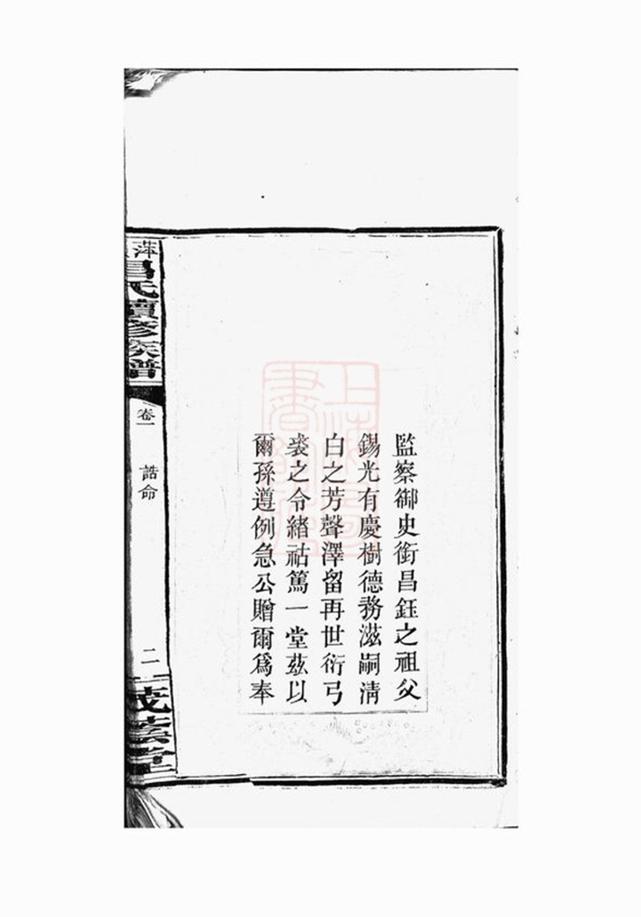 監察御史銜昌鈺之祖父
錫光有慶樹德務滋嗣淸
白之芳聲澤留再世衍弓
裘之令緒祜篤一堂兹以
爾孫遵例急公贈爾爲奉
萍
昌氏續修族譜
卷一
誥命
二